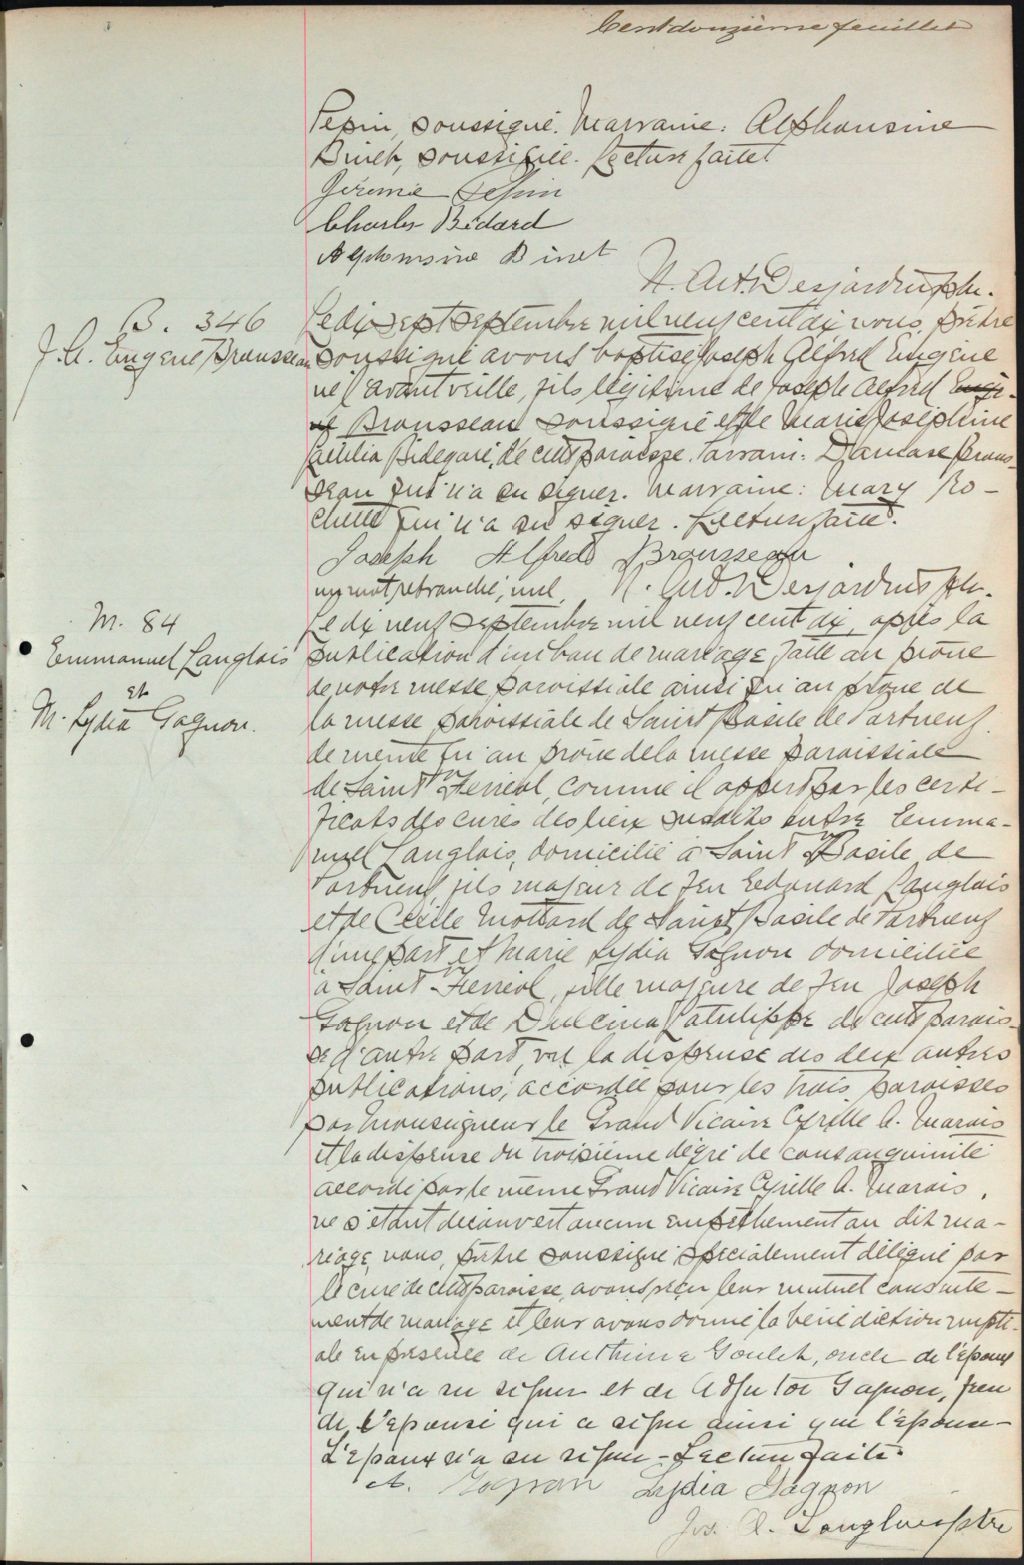 Cent douzième feuillet
Pepin, soussigné. Marraine: Alphonsine
Binet, soussignée. Lecture faite.
Jérémie Pepin
Charles Bédard
Alphonsine Binet
N. Art. Desjardins ptre.
B. 346
J. A. Eugène Brousseau
Le dix sept septembre mil neuf cent dix nous, prêtre
soussigné avons baptisé Joseph Alfred Eugène
né l'avant veille, fils légitime de Joseph Alfred
Brousseau soussigné et de Marie Joséphine
Bidegaré, de cette paroisse. Parrain: Damase Brous-
seau qui n'a su signer. Marraine: Mary Ro-
chette qui n'a su signer. Lecture faite.
Joseph Alfred Brousseau
un mot retranché, nul. N. Art. Desjardins ptre.
M. 84
Emmanuel Langlois
et
M. Lydia Gagnon.
Le dix neuf septembre mil neuf cent dix, après la
publication d'un ban de mariage faite au prône
de notre messe paroissiale ainsi qu'au prône de
la messe paroissiale de Saint Basile de Portneuf
de même qu'au prône de la messe paroissiale
de Saint Ferréol, comme il appert par les certi-
ficats des curés des lieux susdits entre Emma-
nuel Langlois, domicilié à Saint Basile de
Portneuf, fils majeur de feu Edouard Langlois
et de Cécile Mottard de Saint Basile de Portneuf
d'une part et Marie Lydia Gagnon domiciliée
à Saint Ferréol, fille majeure de feu Joseph
Gagnon et de Dulcina Latulippe de cette parois-
se d'autre part, vu la dispense des deux autres
publications, accordée pour les trois paroisses
par Monseigneur le Grand Vicaire Cyrille A. Marois
et la dispense du troisième degré de consanguinité
accordé par le même Grand Vicaire Cyrille A. Marois,
ne s'étant découvert aucun empêchement au dit ma-
riage, nous, prêtre soussigné, spécialement délégué par
le curé de cette paroisse, avons reçu leur mutuel consente-
ment de mariage et leur avons donné la bénédiction nupti-
ale en présence de Anthime Goulet, oncle de l'époux
qui n'a su signer et de Adjutor Gagnon, frère
de l'épouse qui a signé ainsi que l'épouse -
L'époux n'a su signer - Lecture faite.
A. Gagnon Lydia Gagnon
Jos. A. Langlois ptre